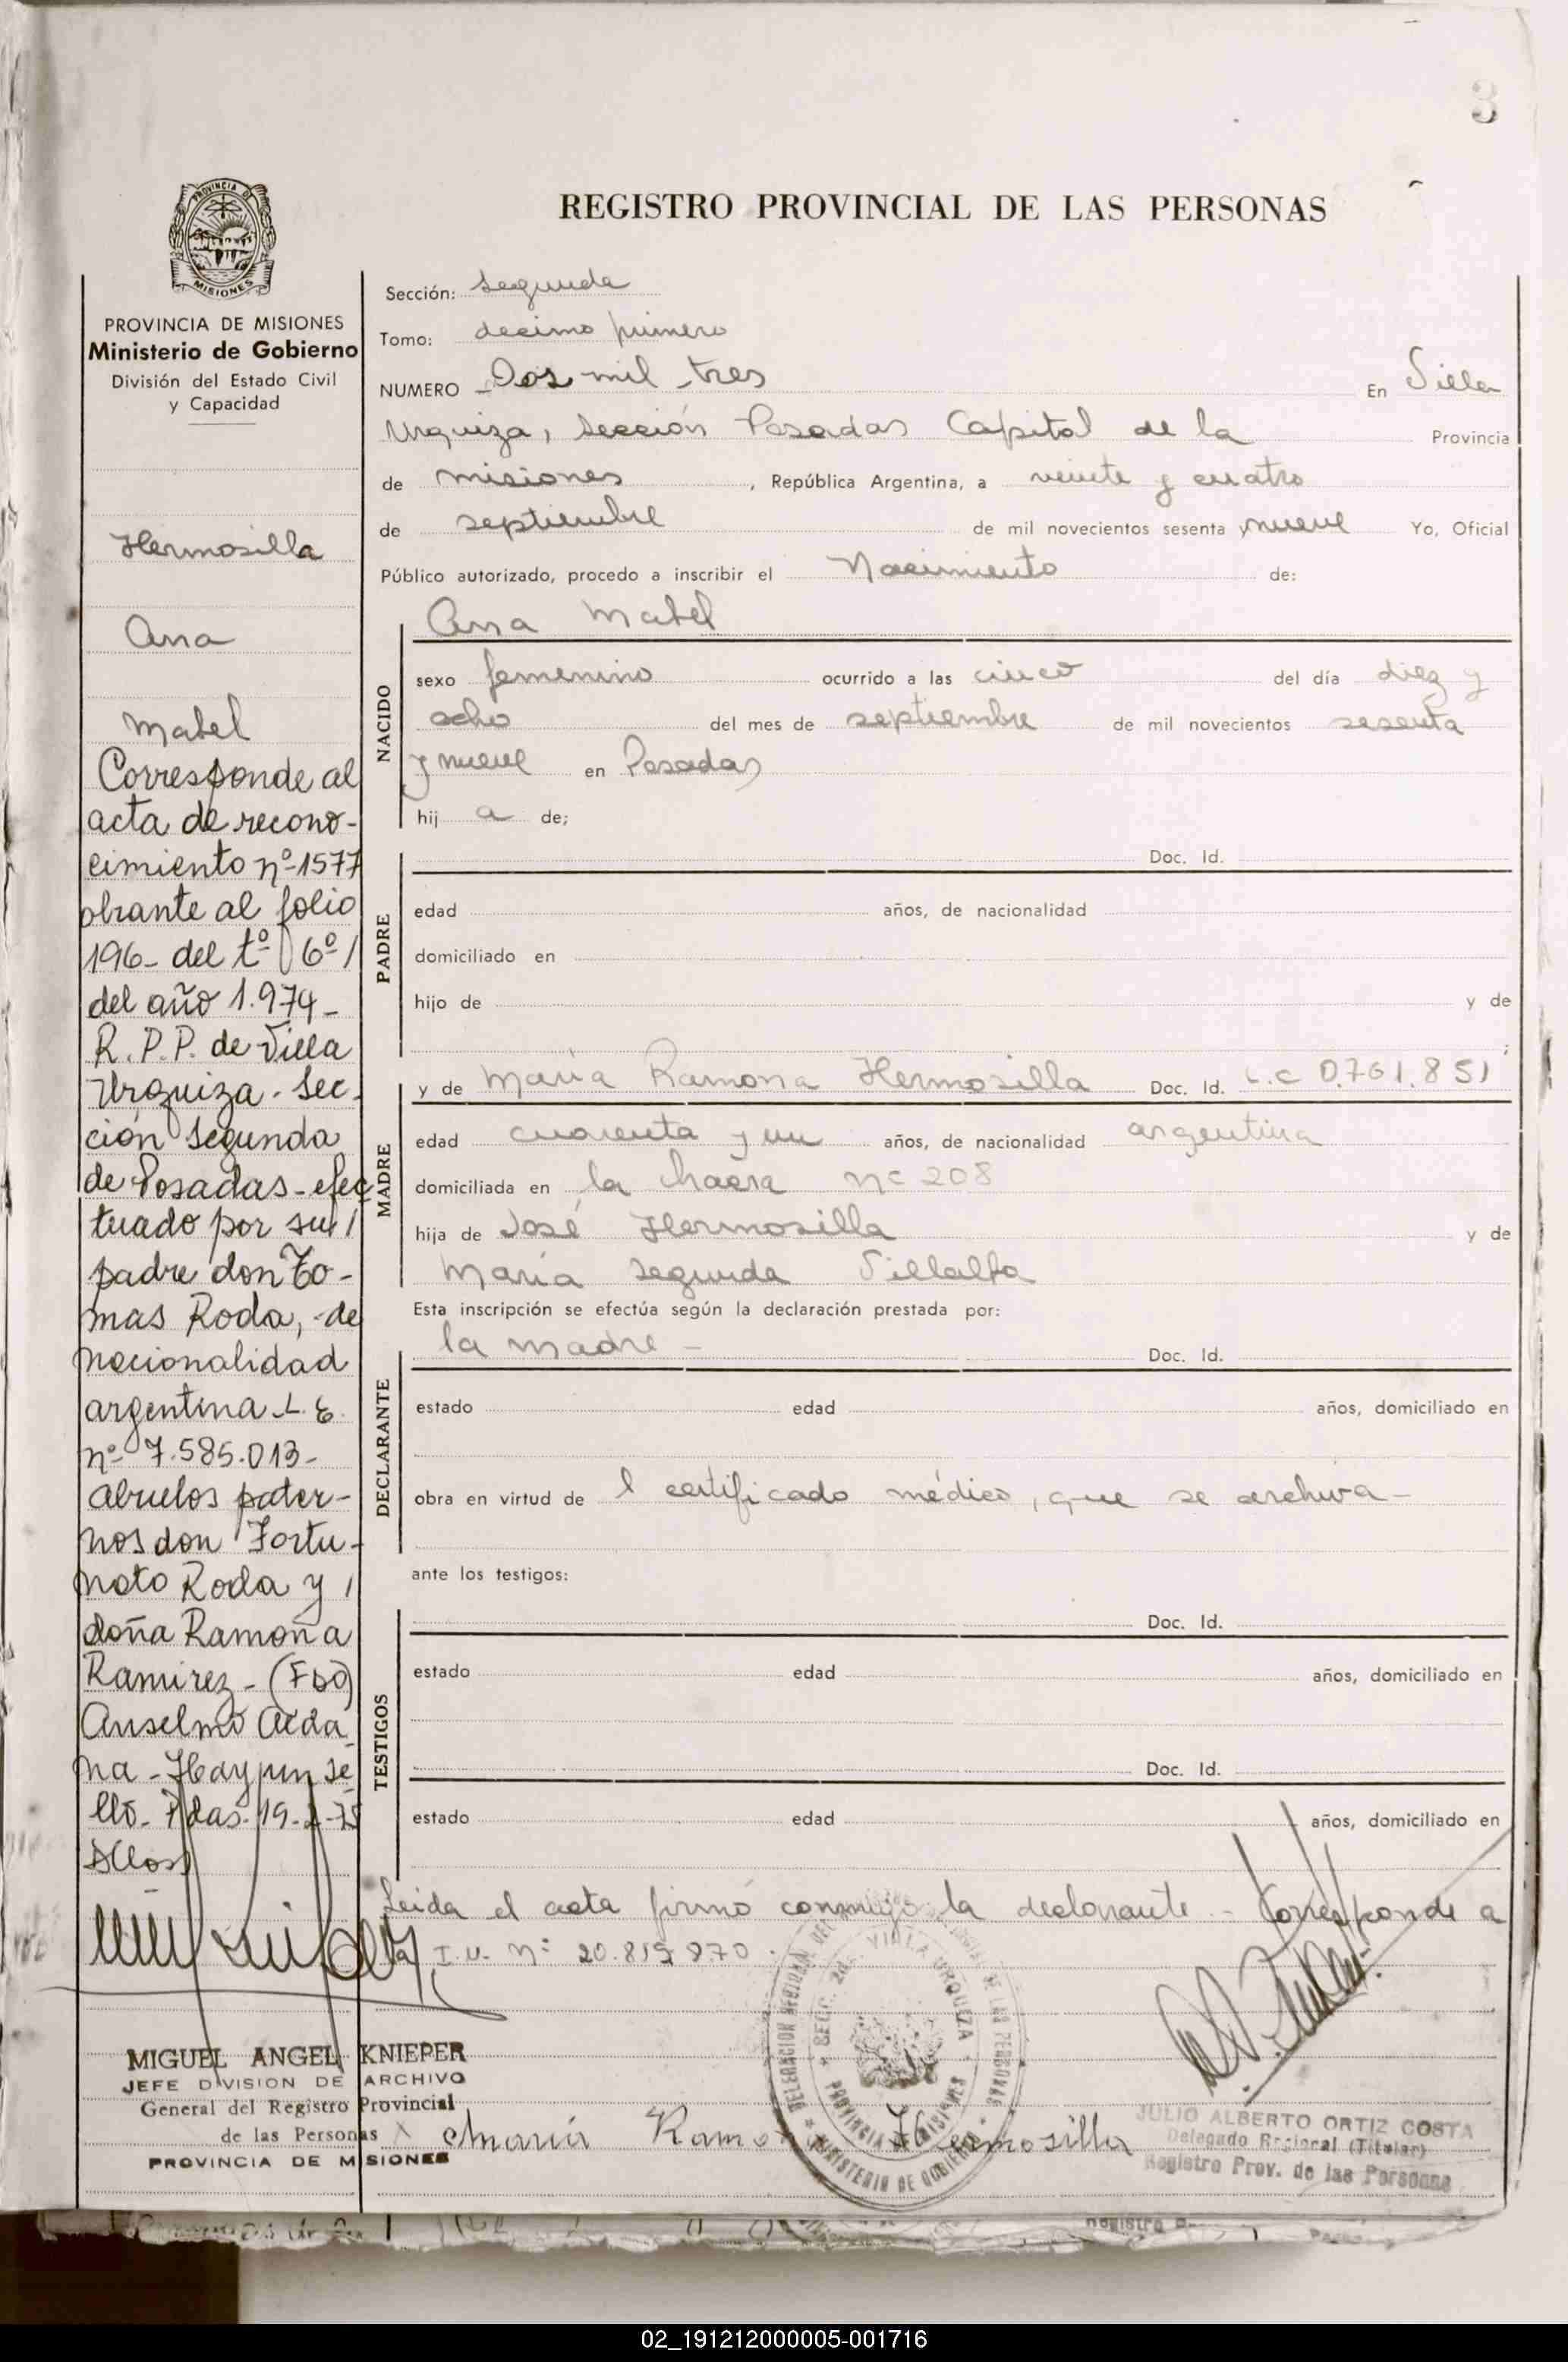 3
REGISTRO PROVINCIAL DE LAS PERSONAS
PROVINCIA DE
MISIONES
PROVINCIA DE MISIONES
Ministerio de Gobierno
División del Estado Civil
y Capacidad
Hermosilla
Ana
Mabel
Corresponde al
acta de recono-
cimiento nº 1577
obrante al folio
196- del tº 6º /
del año 1.974-
R.P.P. de Villa
Urquiza- Sec-
ción Segunda
de Posadas- efec
tuado por su /
padre don To-
mas Roda, de
nacionalidad
argentina L.E.
nº 7.585.013-
abuelos pater-
nos don Fortu-
nato Roda y /
doña Ramona
Ramirez- (Fdo)
Anselmo Alda
na- Hay un se
llo- Pdas. 19-2-75
MIGUEL ANGEL KNIEPER
JEFE DIVISION DE ARCHIVO
General del Registro Provincial
de las Personas
PROVINCIA DE MISIONES
Sección: Segunda
Tomo: decimo primero
NUMERO Dos mil tres En Villa
Urquiza, Sección Posadas Capital de la Provincia
de Misiones, República Argentina, a veinte y cuatro
de septiembre de mil novecientos sesenta y nueve Yo, Oficial
Público autorizado, procedo a inscribir el Nacimiento de:
Ana Mabel
NACIDO
sexo femenino ocurrido a las cinco del día diez y
ocho del mes de septiembre de mil novecientos sesenta
y nueve en Posadas
hij a de;
PADRE
Doc. Id.
edad años, de nacionalidad
domiciliado en
hijo de y de
;
MADRE
y de María Ramona Hermosilla Doc. Id. L.C 0.761.851
edad cuarenta y un años, de nacionalidad argentina
domiciliada en la Chacra Nº 208
hija de José Hermosilla y de
María Segunda Villalba
Esta inscripción se efectúa según la declaración prestada por:
DECLARANTE
la madre - Doc. Id.
estado edad años, domiciliado en
obra en virtud de l certificado médico, que se archiva-
ante los testigos:
TESTIGOS
Doc. Id.
estado edad años, domiciliado en
Doc. Id.
estado edad años, domiciliado en
Leida el acta firmó conmigo la declarante.- Corresponde a
la I.U. Nº 20.819.870.
SECC. 2da. VILLA URQUIZA
PROVINCIA DE MISIONES
MINISTERIO DE GOBIERNO
X María Ramona Hermosilla
JULIO ALBERTO ORTIZ COSTA
Delegado Regional (Titular)
Registro Prov. de las Personas
02_191212000005-001716